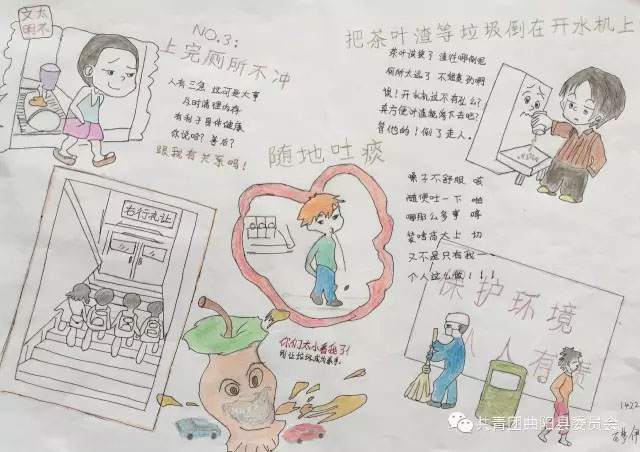 文明
不
NO.3:
上完厕所不冲
人有三急 这可是大事
及时清理内存
有利于身体健康
你说啥? 善后?
跟我有关系吗!
把茶叶渣等垃圾倒在开水机上
茶叶该换了 渣往哪倒呢
厕所太远了 不想走
咦!开水机这不有孔么?
管他的!倒了走人。
随地吐痰
嗓子不舒服 咳
随便吐一下 啪
哪那么多事 哼
装啥高大上 切
又不是只有我一
个人这么做!!!
右行礼让
你们太小看我了!
别让垃圾成为杀手。
保护环境
人人有责
1422
共青团曲阳县委员会